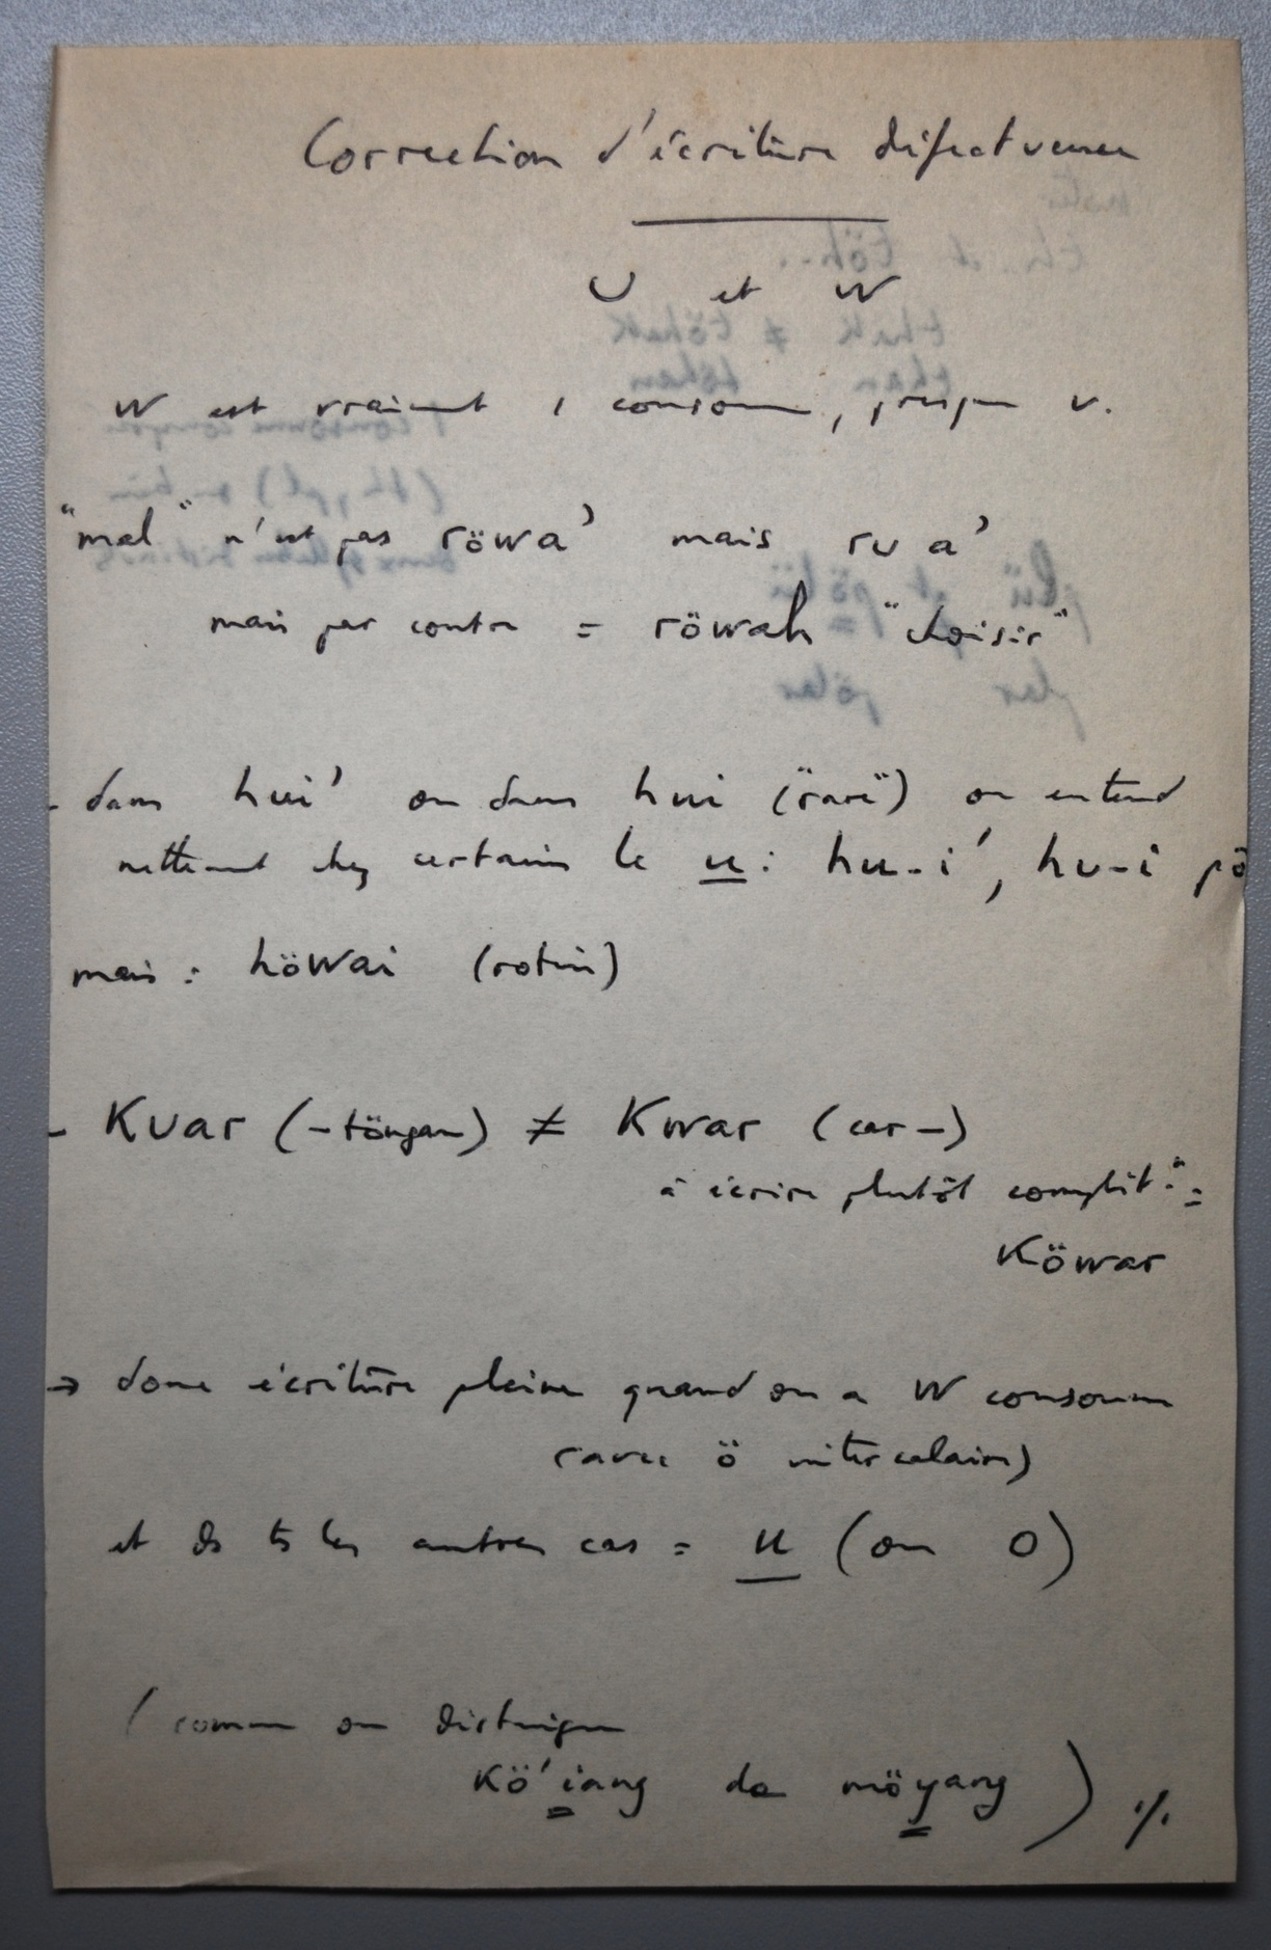 Correction d'écriture défectueuse
U et W
W est vraiment 1 consonne, presque v.
"mal" n'est pas röwa' mais rua'
mais par contre = röwah "choisir"
- dans hui' ou dans hui ("rare") on entend
nettement chez certains le u : hu-i', hu-i pö
mais : höwai (rotin)
- Kuar (-töngan) ≠ Kwar (car-)
à écrire plutôt complèt. =
Köwar
→ donc écriture pleine quand on a W consonne
(avec ö intercalaire)
et ds ts les autres cas = u (ou o)
(comme on distingue
Kö'iang de möyang) ./.